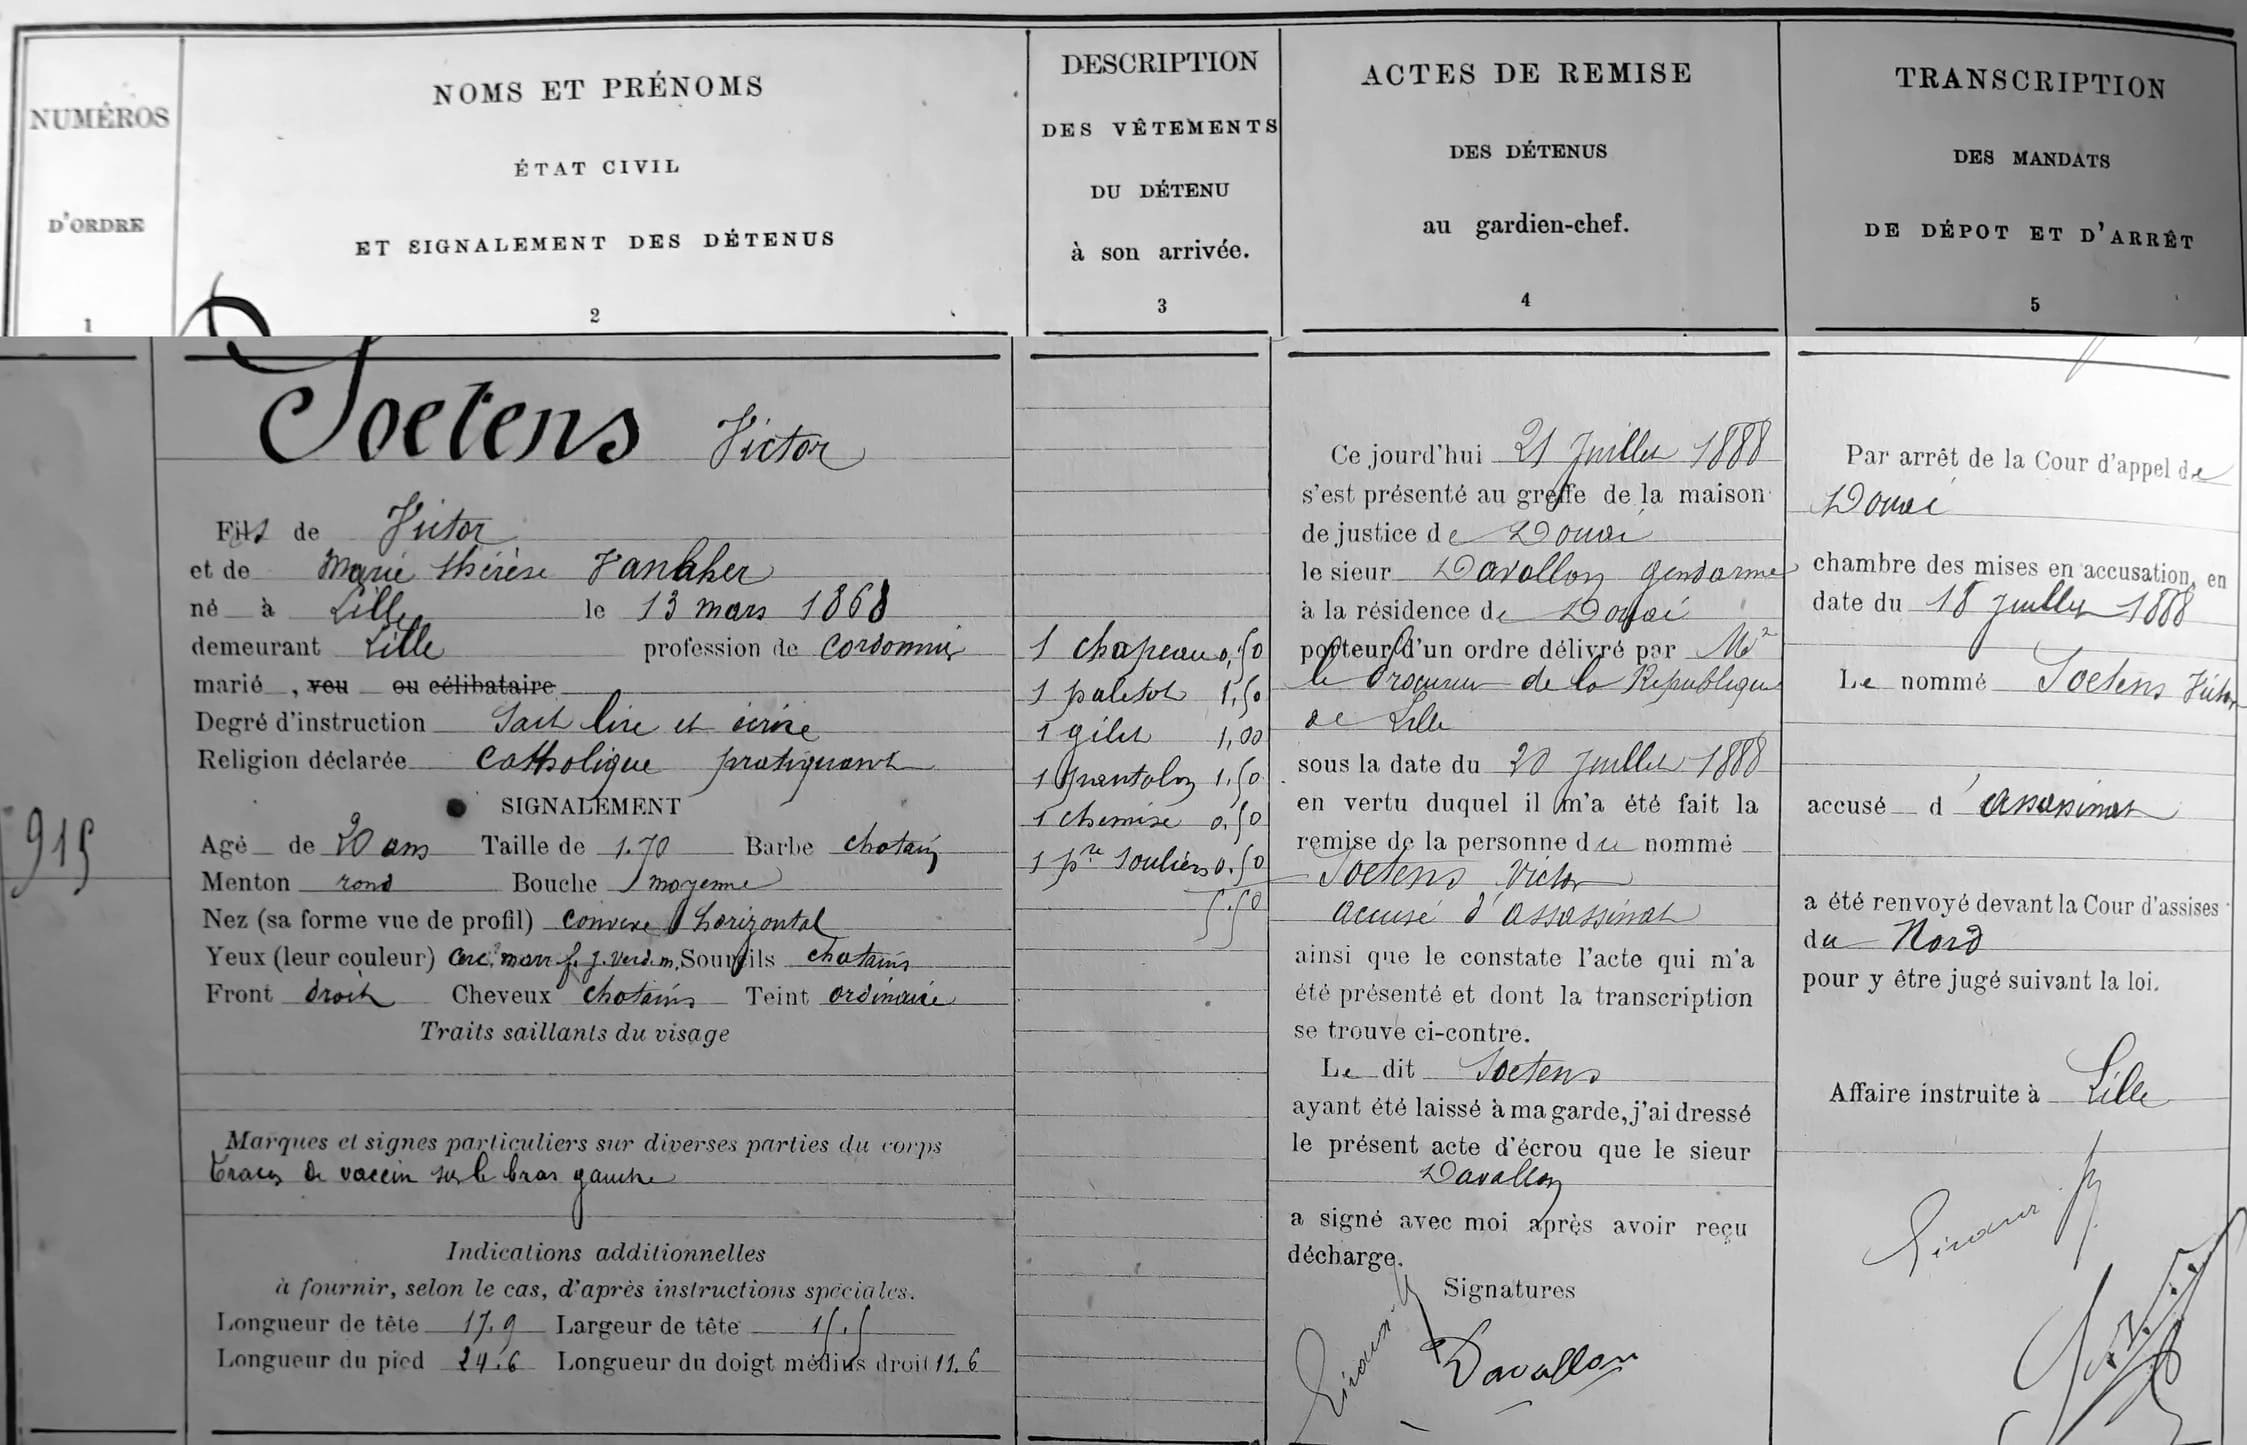 NUMÉROS
D'ORDRE
1
NOMS ET PRÉNOMS
ÉTAT CIVIL
ET SIGNALEMENT DES DÉTENUS
2
DESCRIPTION
DES VÊTEMENTS
DU DÉTENU
à son arrivée.
3
ACTES DE REMISE
DES DÉTENUS
au gardien-chef.
4
TRANSCRIPTION
DES MANDATS
DE DÉPOT ET D'ARRÊT
5
915
Soetens Victor
Fils de Victor
et de Marie thérèse
né à Lille le 13 mars 1868
demeurant Lille profession de cordonnier
marié, veu ou célibataire
Degré d'instruction Sait lire et écrire
Religion déclarée Catholique pratiquant
SIGNALEMENT
Agé de 20 ans Taille de 1.70 Barbe chatain
Menton rond Bouche moyenne
Nez (sa forme vue de profil) convexe horizontal
Yeux (leur couleur) marr f. j. Verd. m. Sourcils chatains
Front droit Cheveux chatains Teint ordinaire
Traits saillants du visage
Marques et signes particuliers sur diverses parties du corps
Traces de vaccin sur le bras gauche
Indications additionnelles
à fournir, selon le cas, d'après instructions spéciales.
Longueur de tête 17.9 Largeur de tête 15.5
Longueur du pied 24.6 Longueur du doigt médius droit 11.6
1 chapeau 0,50
1 paletot 1,50
1 gilet 1,00
1 pantalon 1,50
1 chemise 0,50
1 pre souliers 0,50
5,50
Ce jourd'hui 21 Juillet 1888
s'est présenté au greffe de la maison
de justice de Douai
le sieur Davallon gendarme
à la résidence de Douai
porteur d'un ordre délivré par Mr
le Procureur de la République
de Lille
sous la date du 20 Juillet 1888
en vertu duquel il m'a été fait la
remise de la personne du nommé
Soetens Victor
accusé d'assassinat
ainsi que le constate l'acte qui m'a
été présenté et dont la transcription
se trouve ci-contre.
Le dit Soetens
ayant été laissé à ma garde, j'ai dressé
le présent acte d'écrou que le sieur
Davallon
a signé avec moi après avoir reçu
décharge.
Signatures
Davallon
Par arrêt de la Cour d'appel de
Douai
chambre des mises en accusation, en
date du 18 juillet 1888
Le nommé Soetens Victor
accusé d'assassinat
a été renvoyé devant la Cour d'assises
du Nord
pour y être jugé suivant la loi.
Affaire instruite à Lille